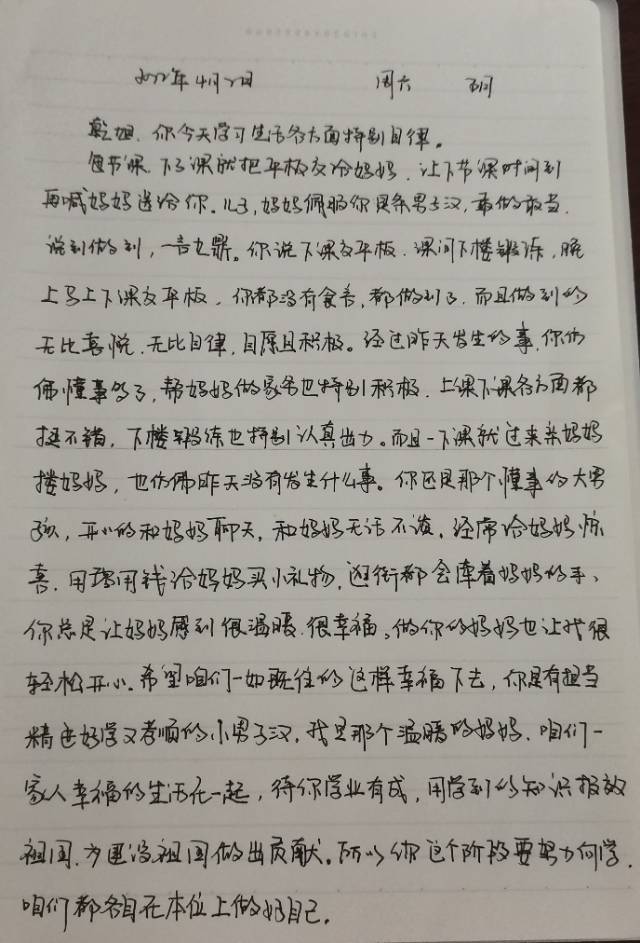 2022年4月2日 周六 晴
乾坦，你今天学习生活各方面特别自律。
每节课，下了课就把平板交给妈妈，让下节课时间到
再喊妈妈送给你。儿子，妈妈佩服你是条男子汉，敢做敢当，
说到做到，一言九鼎。你说下课交平板，课间下楼锻炼，晚
上马上下课交平板，你都没有食言，都做到了，而且做到的
无比喜悦，无比自律，自愿且积极。经过昨天发生的事，你仿
佛懂事多了，帮妈妈做家务也特别积极，上课下课各方面都
挺不错，下楼锻练也特别认真出力。而且一下课就过来亲妈妈
搂妈妈，也仿佛昨天没有发生什么事。你还是那个懂事的大男
孩，开心的和妈妈聊天，和妈妈无话不谈，经常给妈妈惊
喜，用零用钱给妈妈买小礼物，逛街都会牵着妈妈的手，
你总是让妈妈感到很温暖，很幸福。做你的妈妈也让我很
轻松开心。希望咱们一如既往的这样幸福下去，你是有担当
精进好学又孝顺的小男子汉，我是那个温暖的妈妈，咱们一
家人幸福的生活在一起，待你学业有成，用学到的知识报效
祖国，为建设祖国做出贡献。所以你这个阶段要努力向学，
咱们都各自在本位上做好自己。